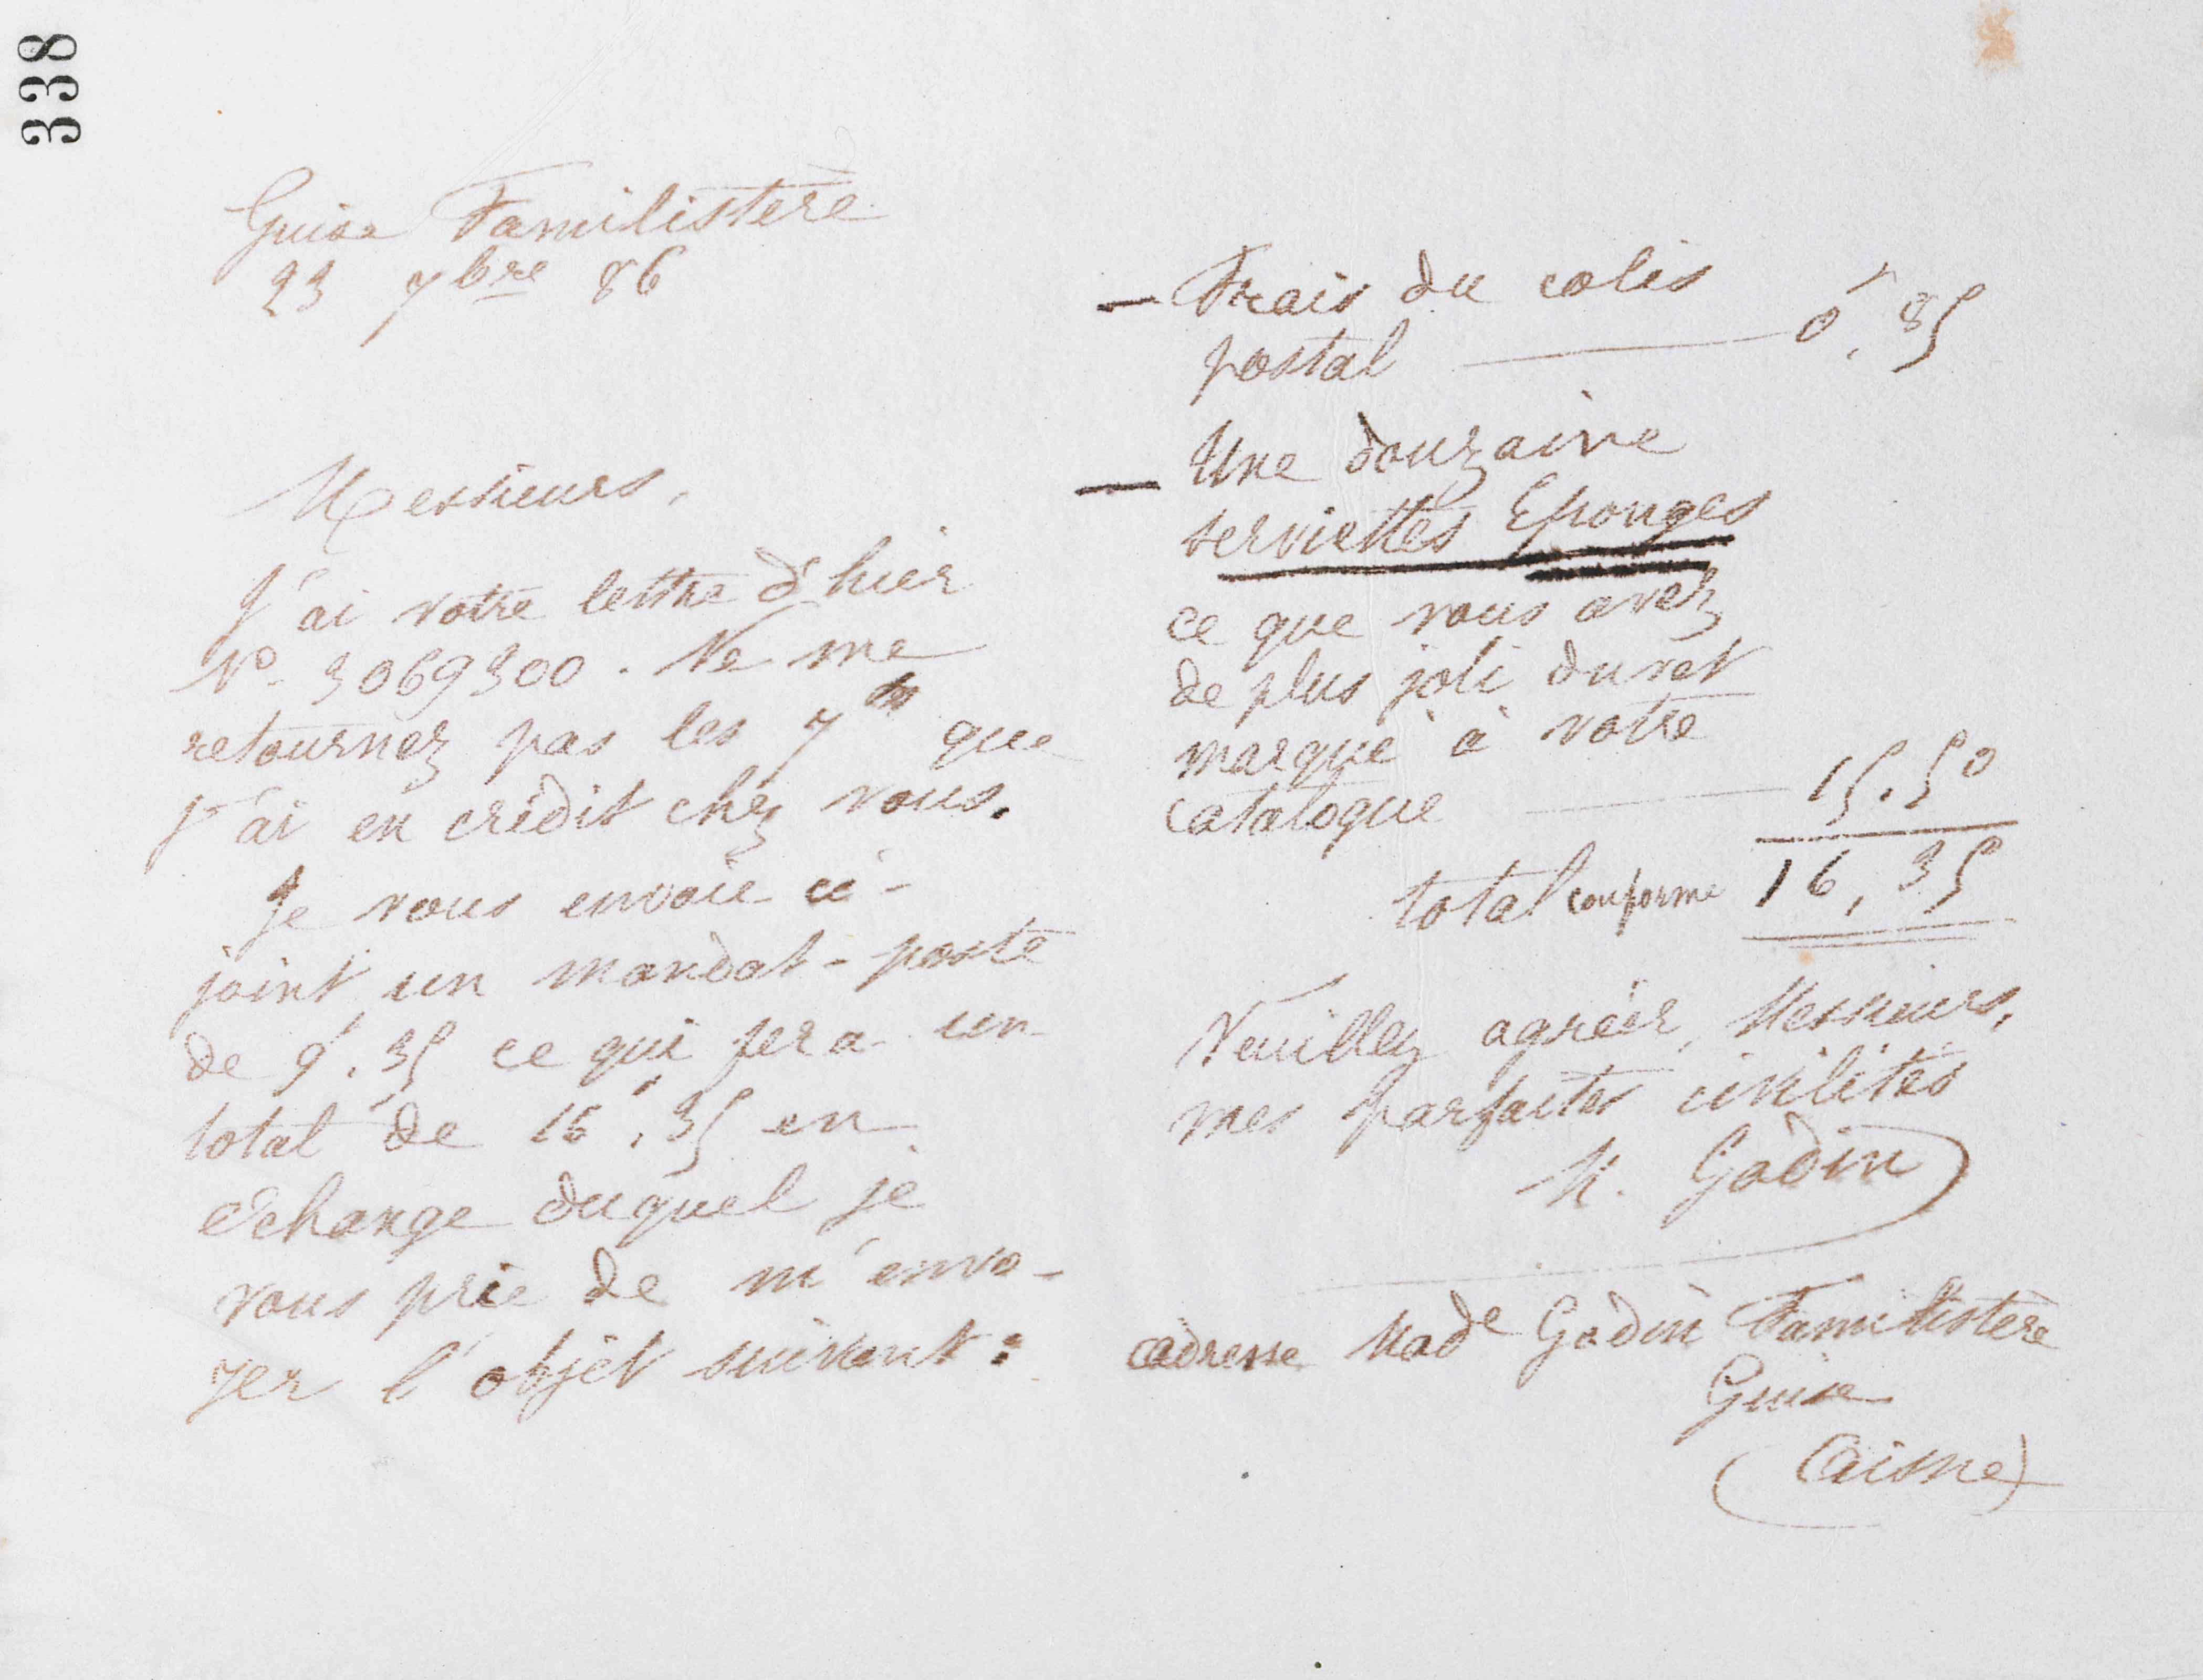 338
Guise Familistère
23 7bre 86
Messieurs,
J'ai votre lettre d'hier
No. 3069300. Ne me
retournez pas les 7f que
j'ai en crédit chez vous.
Je vous envoie ci-
joint un mandat-poste
de 9f.35 ce qui fera un
total de 16f.35 en
échange duquel je
vous prie de m'envo-
yer l'objet suivant:
— Frais du colis
postal — 0f,85
— Une douzaine
serviettes Eponges
ce que vous avez
de plus joli duvet
marqué à votre
catalogue — 15.50
total conforme 16,35
Veuillez agréer, Messieurs,
mes parfaites civilités
M. Godin
adresse Made Godin Familistère
Guise
(Aisne)